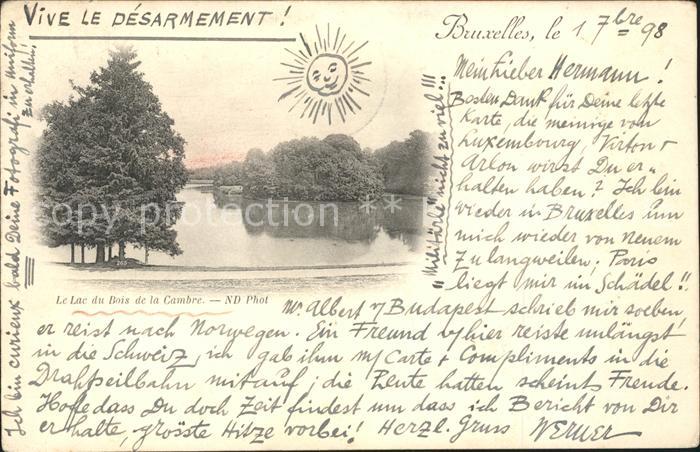 VIVE LE DÉSARMEMENT!
Bruxelles, le 1 7bre 98
Mein lieber Hermann!
Besten Dank für Deine letzte
Karte, die meinige von
Luxembourg, Virton +
Arlon wirst Du er=
halten haben? Ich bin
wieder in Bruxelles um
mich wieder von neuem
zu langweilen; Paris
liegt mir im Schädel!!
Mr. Albert v/ Budapest schrieb mir soeben,
er reist nach Norwegen. Ein Freund v/ hier reiste unlängst
in die Schweiz, ich gab ihm m/ Carte + Compliments in die
Drahtseilbahn mit auf; die Leute hatten scheints Freude.
Hoffe dass Du doch Zeit findest um dass ich Bericht von Dir
erhalte, grösste Hitze vorbei! Herzl. Gruss WERNER
Ich bin curieux bald Deine Fotografi in uniform
zu erhalten!
"Militärle" nicht zu viel!!!
Le Lac du Bois de la Cambre. — ND Phot
copy protection **